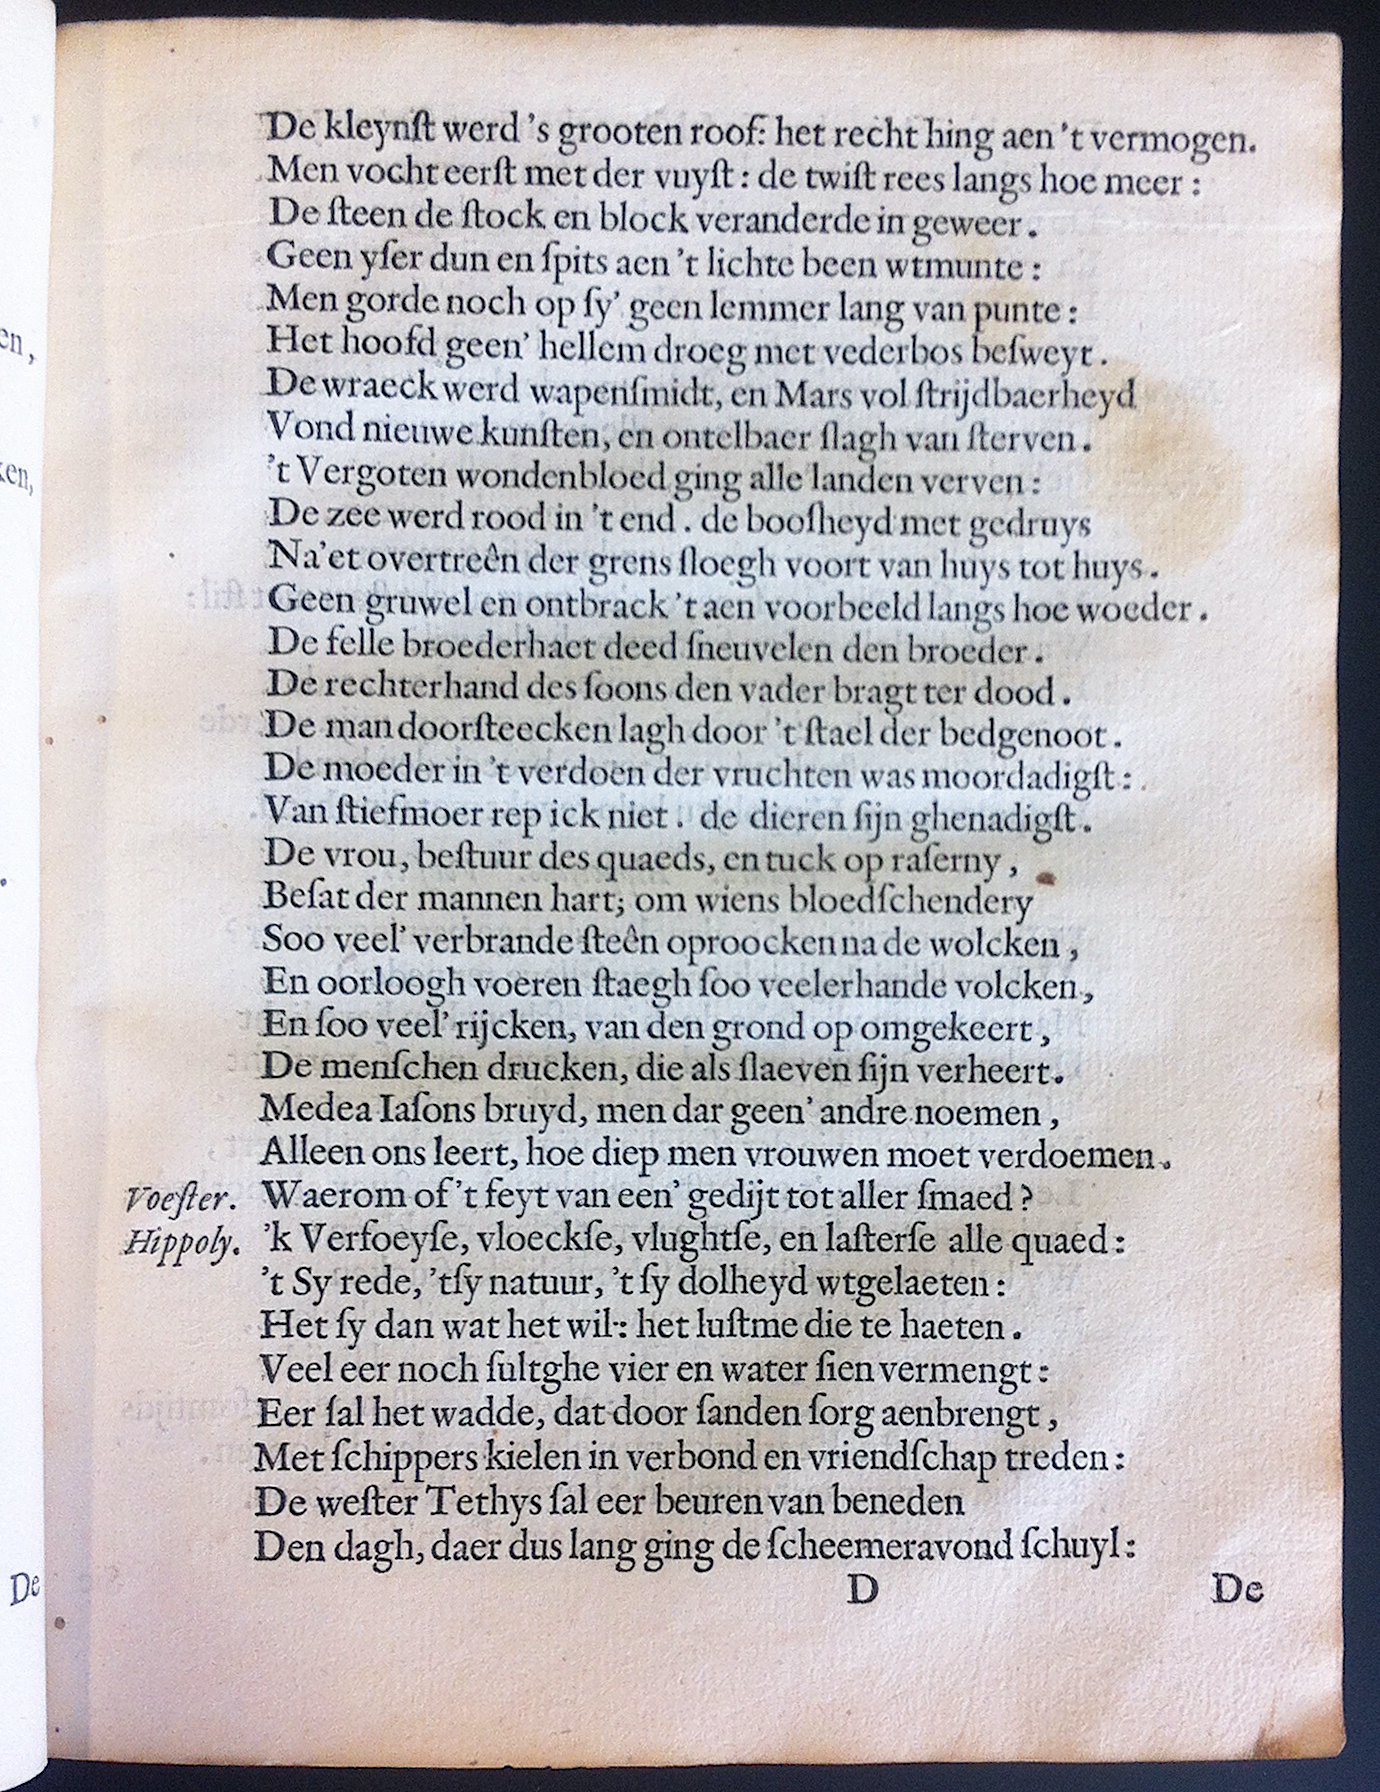 De kleynſt werd 's grooten roof: het recht hing aen 't vermogen.
Men vocht eerſt met der vuyſt : de twiſt rees langs hoe meer :
De ſteen de ſtock en block veranderde in geweer.
Geen yſer dun en ſpits aen 't lichte been wtmunte :
Men gorde noch op ſy' geen lemmer lang van punte :
Het hoofd geen' hellem droeg met vederbos beſweyt.
De wraeck werd wapenſmidt, en Mars vol ſtrijdbaerheyd
Vond nieuwe kunſten, en ontelbaer ſlagh van ſterven.
't Vergoten wondenbloed ging alle landen verven :
De zee werd rood in 't end. de booſheyd met gedruys
Na'et overtreên der grens ſloegh voort van huys tot huys.
Geen gruwel en ontbrack 't aen voorbeeld langs hoe woeder.
De felle broederhaet deed ſneuvelen den broeder.
De rechterhand des ſoons den vader bragt ter dood.
De man doorſteecken lagh door 't ſtael der bedgenoot.
De moeder in 't verdoen der vruchten was moordadigſt :
Van ſtiefmoer rep ick niet. de dieren ſijn ghenadigſt.
De vrou, beſtuur des quaeds, en tuck op raſerny,
Beſat der mannen hart; om wiens bloedſchendery
Soo veel' verbrande ſteên oproocken na de wolcken,
En oorloogh voeren ſtaegh ſoo veelerhande volcken,
En ſoo veel' rijcken, van den grond op omgekeert,
De menſchen drucken, die als ſlaeven ſijn verheert.
Medea Iaſons bruyd, men dar geen' andre noemen,
Alleen ons leert, hoe diep men vrouwen moet verdoemen.
Voeſter. Waerom of 't feyt van een' gedijt tot aller ſmaed?
Hippoly. 'k Verfoeyſe, vloeckſe, vlughtſe, en laſterſe alle quaed :
't Sy rede, 'tſy natuur, 't ſy dolheyd wtgelaeten :
Het ſy dan wat het wil: het luſtme die te haeten.
Veel eer noch ſultghe vier en water ſien vermengt :
Eer ſal het wadde, dat door ſanden ſorg aenbrengt,
Met ſchippers kielen in verbond en vriendſchap treden :
De weſter Tethys ſal eer beuren van beneden
Den dagh, daer dus lang ging de ſcheemeravond ſchuyl :
D De
en,
ken,
De